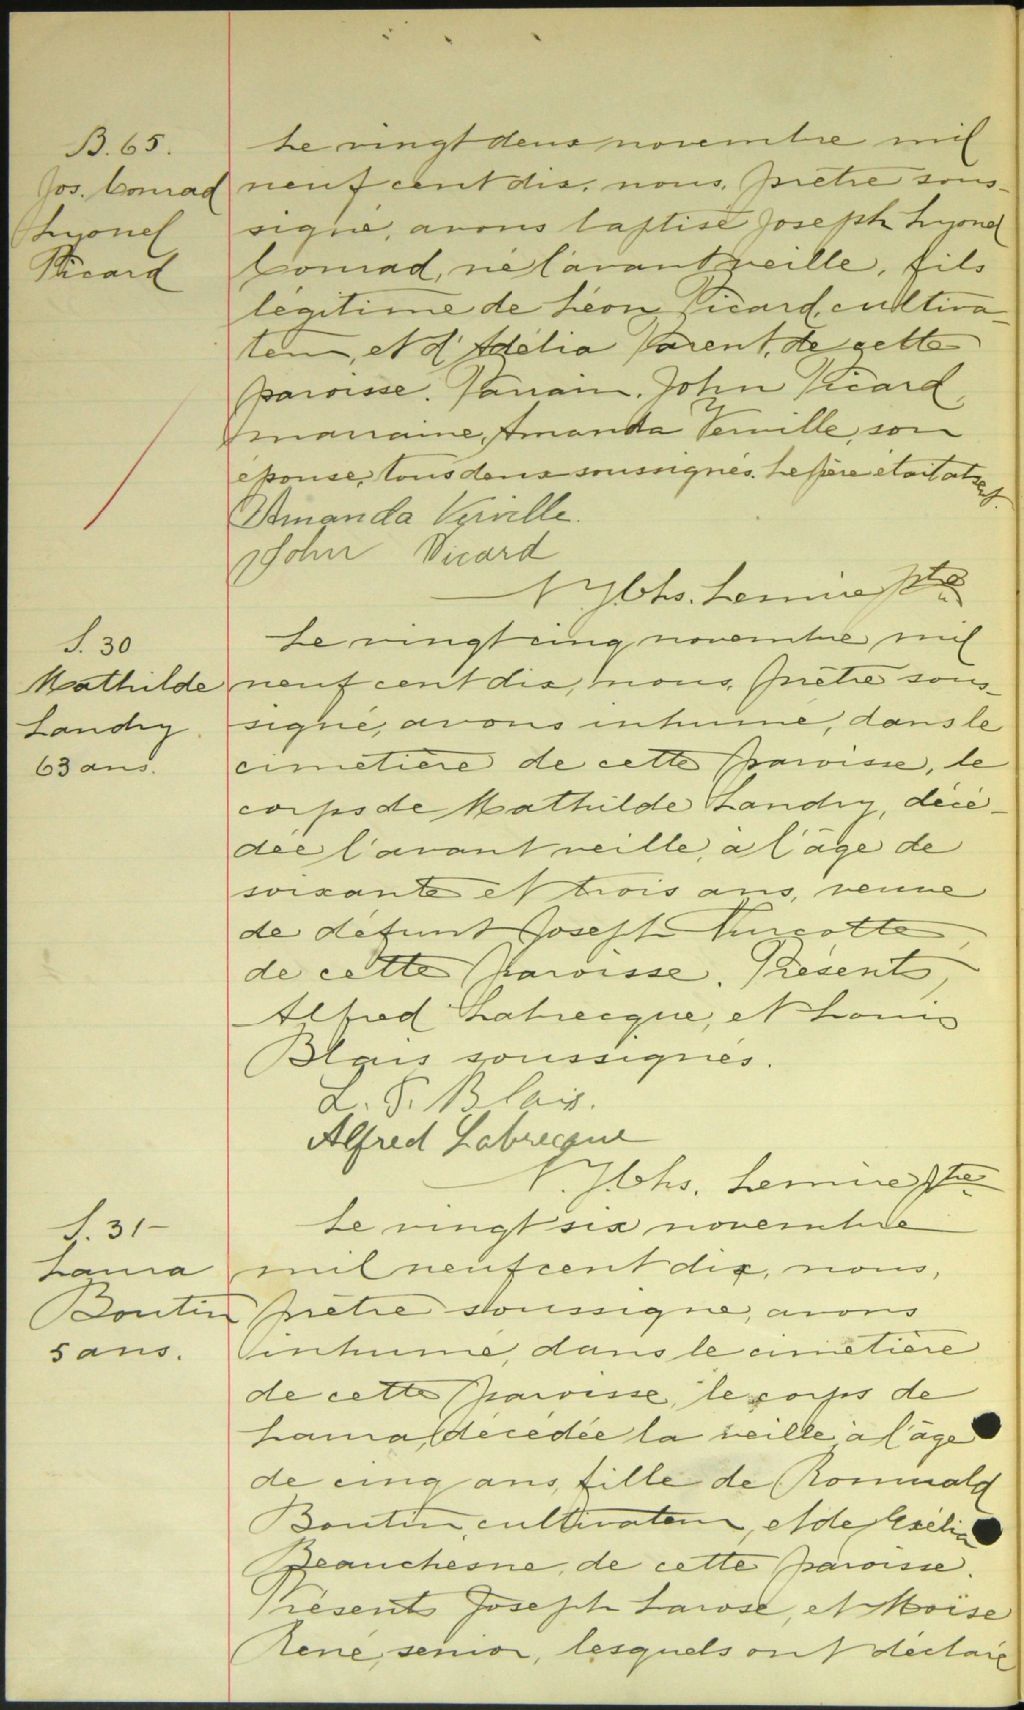 B. 65.
Jos. Conrad
Lyonel
Picard
Le vingt deux novembre mil
neuf cent dix, nous, prêtre sous-
signé, avons baptisé Joseph Lyonel
Conrad, né l'avant veille, fils
légitime de Léon Picard, cultiva-
teur, et d'Adélia Parent, de cette
paroisse. Parrain, John Picard,
marraine, Amanda Verville, son
épouse, tous deux soussignés. Le père était absent.
Amanda Verville.
John Picard
Chs. Lemire ptre
S. 30
Mathilde
Landry.
63 ans.
Le vingt cinq novembre mil
neuf cent dix, nous, prêtre sous-
signé, avons inhumé, dans le
cimetière de cette paroisse, le
corps de Mathilde Landry, décé-
dée l'avant veille, à l'âge de
soixante et trois ans, veuve
de défunt Joseph Turcotte,
de cette paroisse. Présents,
Alfred Labrecque, et Louis
Blais soussignés.
L. P. Blais.
Alfred Labrecque
Chs. Lemire ptre
S. 31-
Laura
Boutin
5 ans.
Le vingt six novembre
mil neuf cent dix, nous,
prêtre soussigné, avons
inhumé, dans le cimetière
de cette paroisse, le corps de
Laura, décédée la veille, à l'âge
de cinq ans, fille de Romuald
Boutin, cultivateur, et de Exélia
Beauchesne, de cette paroisse.
Présents Joseph Larose, et Moïse
René, senior, lesquels ont déclaré